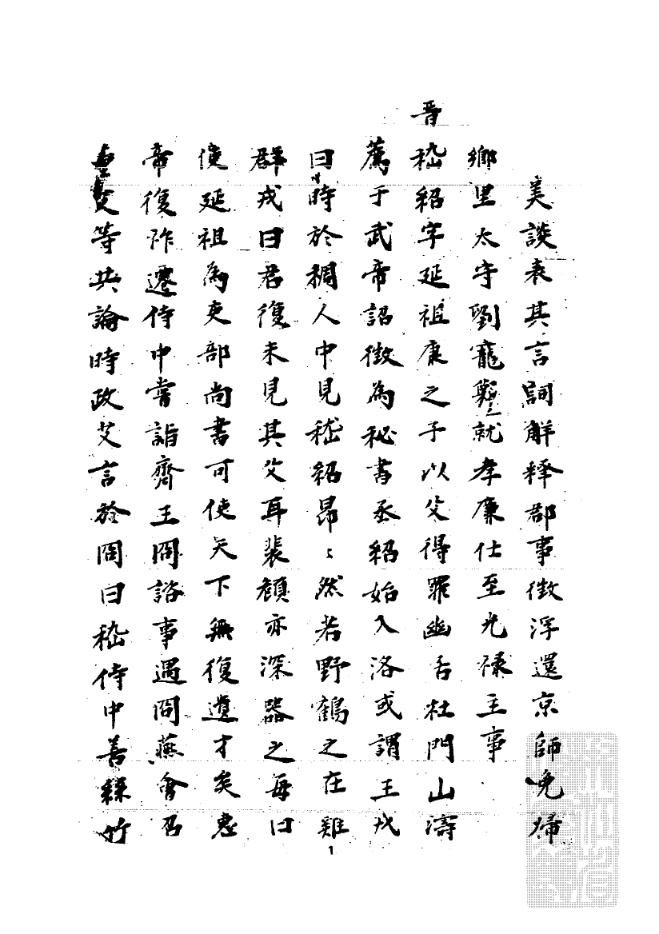 美談表其言詞解釋郡事徵浮還京師免歸
鄉里太守劉寵舉就孝廉仕至光祿主事
晉嵇紹字延祖康之子以父得罪幽居杜門山濤
薦于武帝詔徵為秘書丞紹始入洛或謂王戎
曰時於稠人中見嵇紹昂〻然若野鶴之在雞
群戎曰君復未見其父耳裴頠亦深器之每曰
使延祖為吏部尚書可使天下無復遺才矣惠
帝復祚遷侍中嘗詣齊王冏諮事遇冏燕會召
艾等共論時政艾言於冏曰嵇侍中善絲竹